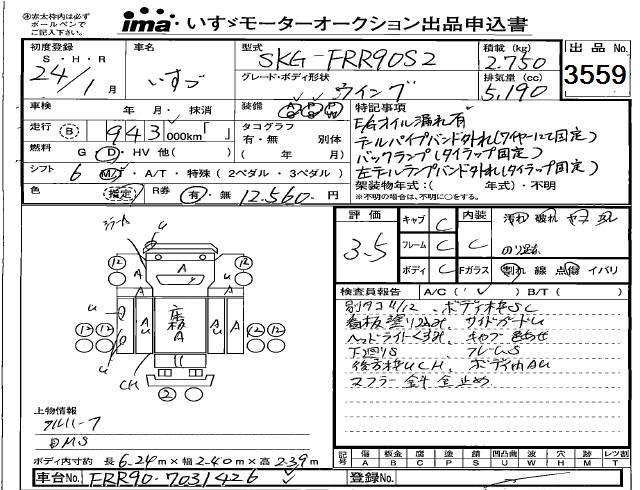 ※赤太枠内は必ず
ボールペンで
ご記入下さい。
ima いすゞモーターオークション出品申込書
初度登録
S・H・R
24/1月
車名
いすゞ
型式
SKG-FRR90S2
グレード・ボディ形状
ウイング
積載(kg)
2.750
排気量(cc)
5.190
出品No.
3559
車検 年 月・ 抹消
装備 AC PS PW
走行 B 943 000km「 」
燃料 G D・HV 他( )
タコグラフ
有・無 別体
( 年 月)
シフト 6 M/T・A/T・特殊(2ペダル・3ペダル)
色 指定 R券 有・無 12.560- 円
特記事項
E/Gオイル漏れ有
テールパイプバンド外れ(ワイヤーにて固定)
バックランプ(タイラップ固定)
左テールランプバンド外れ(タイラップ固定)
架装物年式:( 年式)・不明
※不明の場合は、不明に○をする。
評価
3.5
キャブ C
フレーム C
ボディ C
内装 C
Fガラス 割れ 線 点傷 イバリ
検査員報告 A/C( ✓ ) B/T( )
別タコ'11/12、ボディ枠SC
看板塗り12A2ヶ、サイドガードU
ヘッドライトくすみ、キャブ 色あせ
下回りS フレームS
後方枠UCH、ボディ内AU
マフラー
U
12 12
A
A U
A U 床板A A U
12 12
CH
2
上物情報
アルバーフ
DMS
ボディ内寸約 長6.24m×幅2.40m×高2.39m
記号 傷A 板金B 腐C 塗P 錆S 凹U 凸凹曲W 欠X 穴H 跡M レツ割T
車台No. FRR90-7031426
登録No.